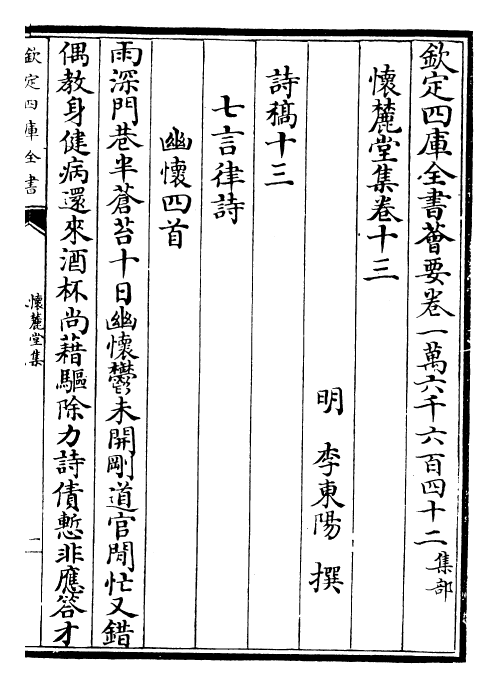 欽定四庫全書薈要卷一萬六千六百四十二集部
懷麓堂集卷十三
明 李東陽 撰
詩稿十三
七言律詩
幽懷四首
雨深門巷半蒼苔十日幽懷鬱未開剛道官閒忙又錯
偶教身健病還來酒杯尚藉驅除力詩債慙非應答才
欽定四庫全書
懷麓堂集